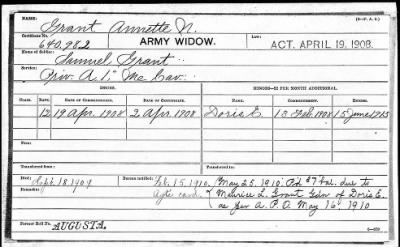 NAME:
Grant Annette N.
(3-P. A. 2.)
Certificate No.
640,982
ARMY WIDOW.
LAW:
ACT. APRIL 19, 1908.
Name of Soldier:
Samuel Grant
Service:
Priv. A 1" Me Cav.
ISSUE.
MINORS—$2 PER MONTH ADDITIONAL.
RATE. DATE OF COMMENCEMENT. DATE OF CERTIFICATE. NAME. DATE OF COMMENCEMENT.
12 19 Apr. 1908 2 Apr. 1908 Doris E. 15 June 1913
Transferred from:
Transferred to:
Died: Sept. 18, 1909
Bureau notified: Feb. 15, 1910.
Agts card.
May 25, 1910. Pd $7 bal. due to
Maurice L. Grant Gdn of Doris E.
as per A. P. O. May 16" 1910
Former Roll No.
AUGUSTA.